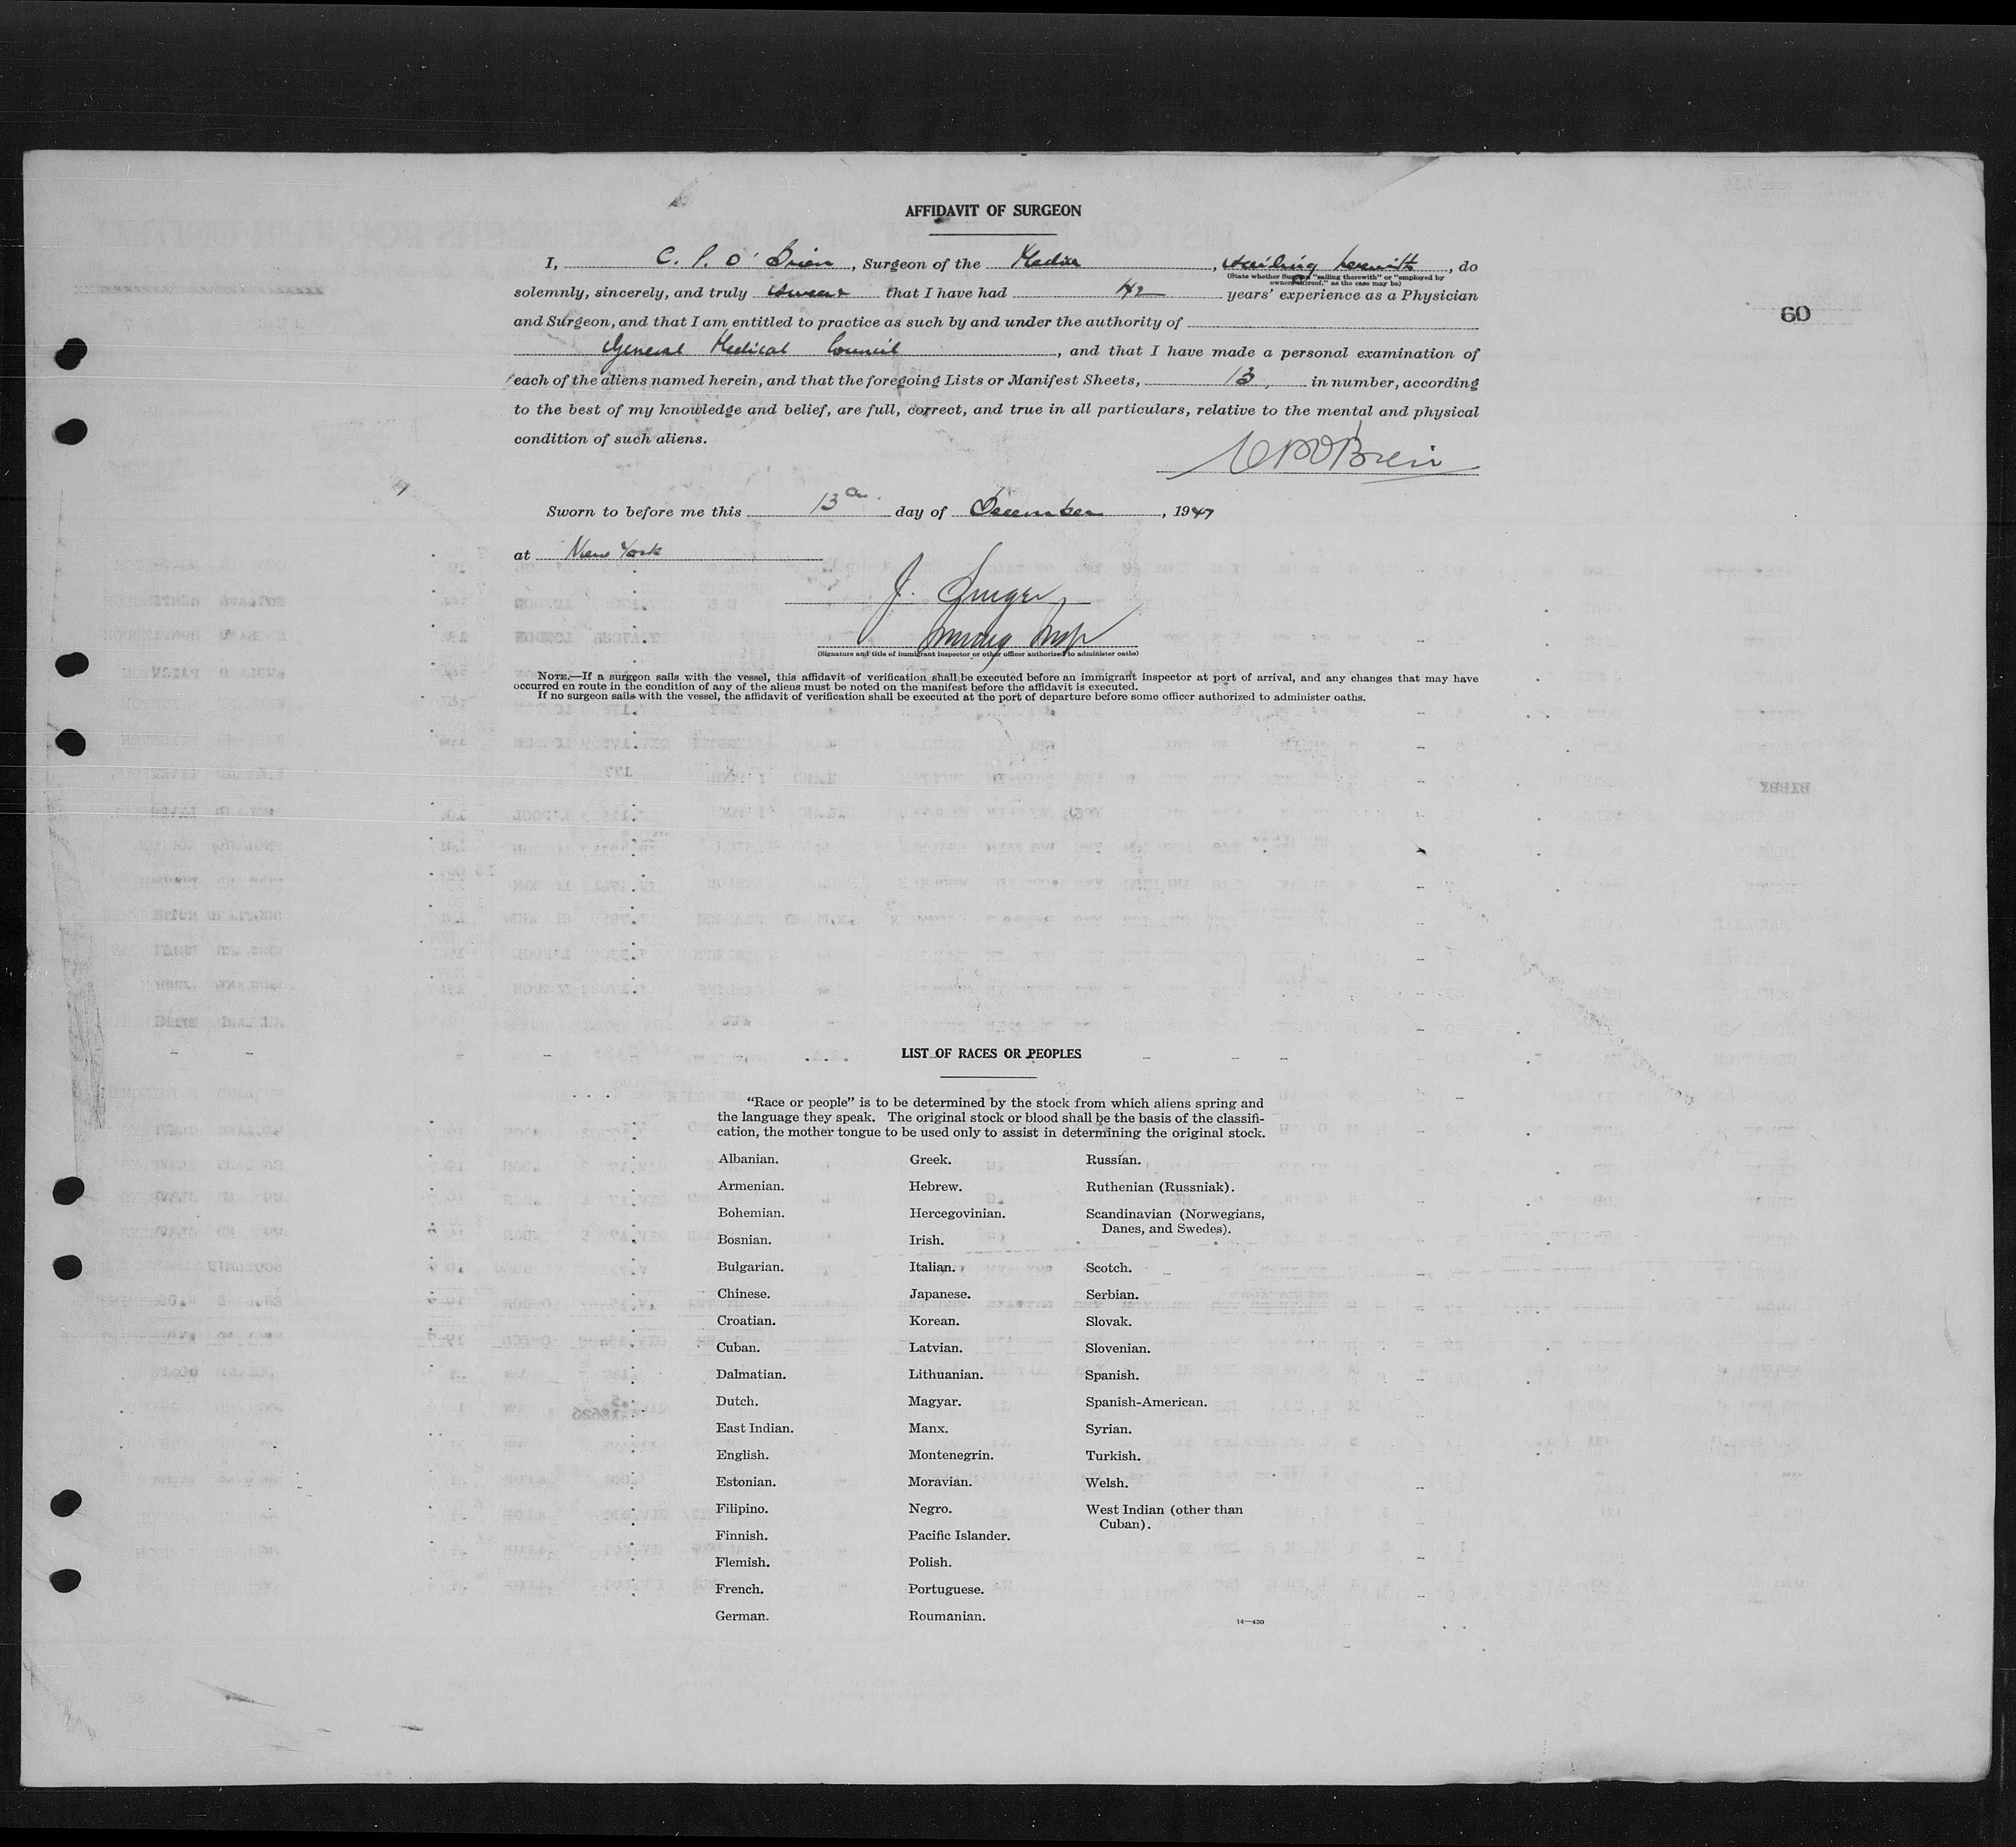 AFFIDAVIT OF SURGEON
I, C. P. O'Brien, Surgeon of the Media, sailing herewith, do
(State whether Surgeon "sailing therewith" or "employed by
owners thereof," as the case may be)
solemnly, sincerely, and truly swear that I have had 42 years' experience as a Physician
60
and Surgeon, and that I am entitled to practice as such by and under the authority of
General Medical Council, and that I have made a personal examination of
each of the aliens named herein, and that the foregoing Lists or Manifest Sheets, 13, in number, according
to the best of my knowledge and belief, are full, correct, and true in all particulars, relative to the mental and physical
condition of such aliens.
C P O'Brien
Sworn to before me this 13 day of December, 1947
at New York
J. Singer
Immig Insp
(Signature and title of immigrant inspector or other officer authorized to administer oaths)
NOTE.—If a surgeon sails with the vessel, this affidavit of verification shall be executed before an immigrant inspector at port of arrival, and any changes that may have
occurred en route in the condition of any of the aliens must be noted on the manifest before the affidavit is executed.
If no surgeon sails with the vessel, the affidavit of verification shall be executed at the port of departure before some officer authorized to administer oaths.
LIST OF RACES OR PEOPLES
"Race or people" is to be determined by the stock from which aliens spring and
the language they speak. The original stock or blood shall be the basis of the classifi-
cation, the mother tongue to be used only to assist in determining the original stock.
Albanian.
Armenian.
Bohemian.
Bosnian.
Bulgarian.
Chinese.
Croatian.
Cuban.
Dalmatian.
Dutch.
East Indian.
English.
Estonian.
Filipino.
Finnish.
Flemish.
French.
German.
Greek.
Hebrew.
Hercegovinian.
Irish.
Italian.
Japanese.
Korean.
Latvian.
Lithuanian.
Magyar.
Manx.
Montenegrin.
Moravian.
Negro.
Pacific Islander.
Polish.
Portuguese.
Roumanian.
Russian.
Ruthenian (Russniak).
Scandinavian (Norwegians,
Danes, and Swedes).
Scotch.
Serbian.
Slovak.
Slovenian.
Spanish.
Spanish-American.
Syrian.
Turkish.
Welsh.
West Indian (other than
Cuban).
14—430